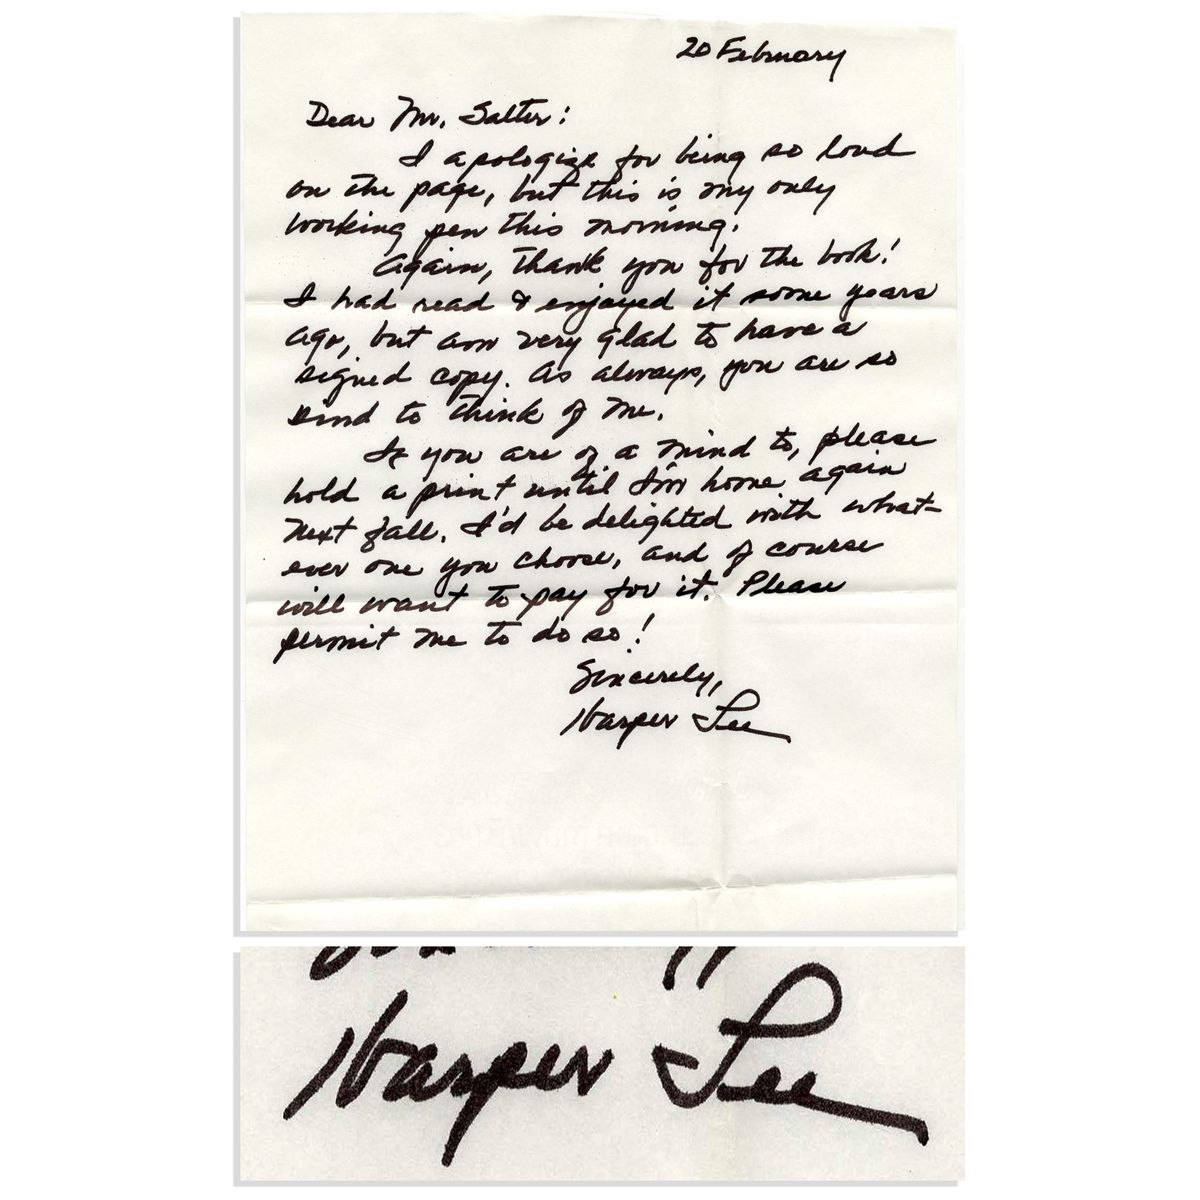 20 February
Dear Mr. Salter:
I apologize for being so loud
on the page, but this is my only
working pen this morning.
Again, thank you for the book!
I had read & enjoyed it some years
ago, but am very glad to have a
signed copy. As always, you are so
kind to think of me.
If you are of a mind to, please
hold a print until I'm home again
next fall. I'd be delighted with what-
ever one you choose, and of course
will want to pay for it. Please
permit me to do so!
Sincerely,
Harper Lee
Harper Lee